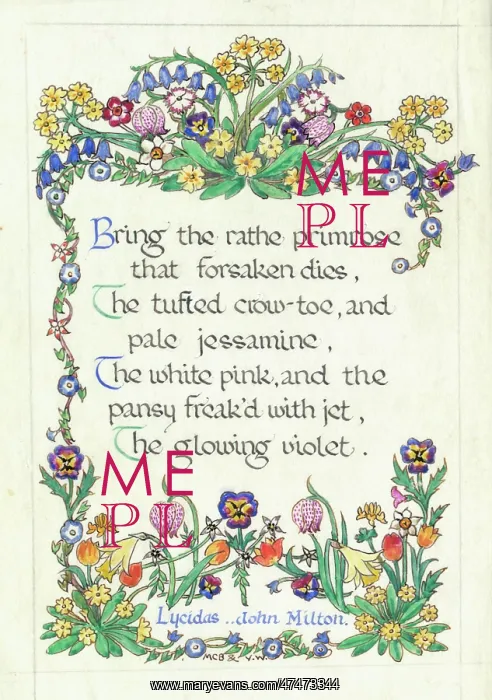 ME
PL
Bring the rathe primrose
that forsaken dies,
The tufted crow-toe, and
pale jessamine,
The white pink, and the
pansy freak'd with jet,
The glowing violet.
ME
PL
Lycidas .. John Milton.
MCB & V.W.
www.maryevans.com/47473344